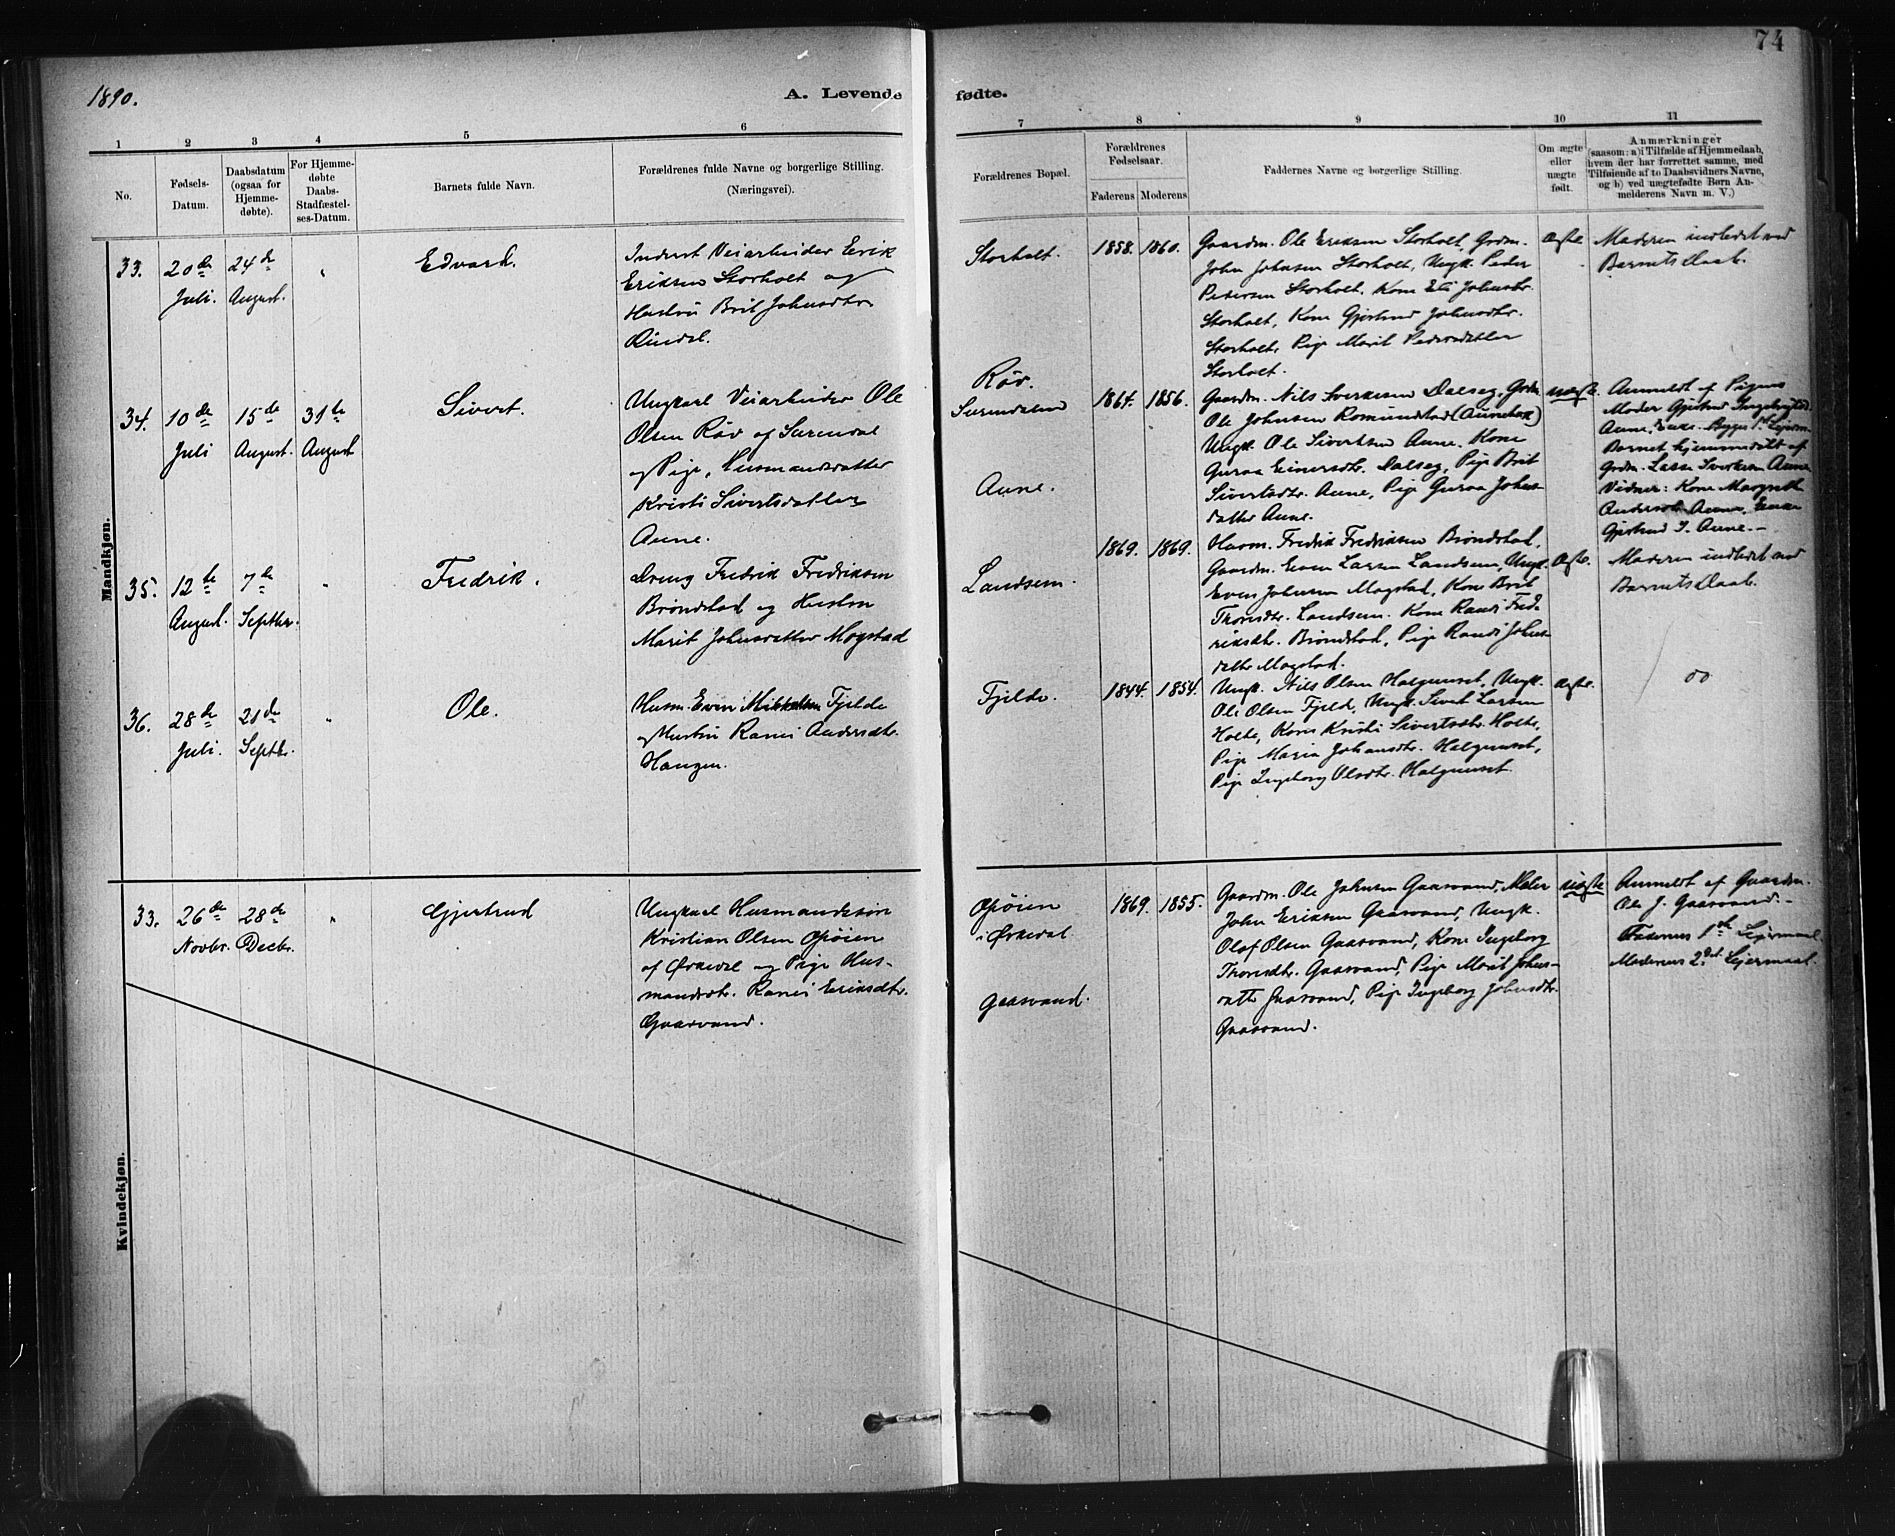 74
1890.
A. Levende fødte.
1 2 3 4 5 6 7 8 9 10 11
No.
Fødsels-
Datum.
Daabsdatum
(ogsaa for
Hjemme-
døbte).
For Hjemme-
døbte
Daabs-
Stadfæstel-
ses-Datum.
Barnets fulde Navn.
Forældrenes fulde Navne og borgerlige Stilling.
(Næringsvei).
Forældrenes Bopæl.
Forældrenes
Fødselsaar.
Faderens Moderens
Faddernes Navne og borgerlige Stilling.
Om ægte
eller
uægte
født.
Anmærkninger
(saasom: a) i Tilfælde af Hjemmedaab,
hvem der har forrettet samme, med
Tilføiende af to Daabsvidners Navne,
og b) ved uægtefødte Børn An-
melderens Navn m. V.)
Mandkjøn.
33.
20de
Juli.
24de
August.
"
Edvard.
Inderst Veiarbeider Erik
Eriksen Storholt og
Hustru Brit Johnsdtr.
Rindal.
Storholt.
1858. 1860.
Gaardm. Ole Eriksen Storholt, Grdm.
John Johnsen Storholt, Ungk. Peder
Pedersen Storholt, Kone Johnsdtr.
Storholt, Kone Gjertrud Johnsdtr.
Storholt, Pige Marit Pedersdatter
Storholt.
ægte.
Moderen indledet ved
Barnets Daab.
34.
10de
Juli
15de
August.
31te
August
Sivert.
Ungkarl Veiarbeider Ole
Olsen Røv af Surendal
og Pige, Husmandsdatter
Kristi Sivertsdatter
Aune.
Røv.
Surendalen
Aune.
1864. 1856.
Gaardm. Nils Sivertsen Dalseg, Grdm.
Ole Johnsen Romundstad (Aunebak)
Ungk. Ole Sivertsen Aune, Kone
Guraa Einersdtr. Dalseg, Pige Brit
Sivertsdtr. Aune, Pige Guraa Johns-
datter Aune.
uægte.
Anmeldt af Pigens
Moder Gjertrud
Aune, Enke. Begges 1ste Leierm.
Barnet hjemmedøbt af
Grdm. Lasse Sivertsen Aune
Vidner: Kone Margreth
Andersdtr. Aune, Enke
Gjertrud I. Aune. -
35.
12te
August.
7de
Septbr.
"
Fredrik.
Dreng Fredrik Fredriksen
Brøndstad og Hustru
Marit Johnsdatter Mogstad
Landsem.
1869. 1869.
Husm. Fredrik Fredriksen Brøndstad,
Gaardm. Even Larsen Landsem, Ungk.
Even Johnsen Mogstad, Kone Brit
Thoresdtr. Landsem. Kone Randi Fred-
riksdtr. Brøndstad, Pige Randi Johns-
datter Mogstad.
ægte.
Moderen indledet ved
Barnets Daab.
36.
28de
Juli.
21de
Septbr.
"
Ole.
Husm. Even Mikkelsen Fjelde
og Hustru Ranei Andersdtr.
Haugen.
Fjelde.
1844. 1854.
Ungk. Nils Olsen Halgunset, Ungk.
Ole Olsen Fjeld, Ungk. Sivert Larsen
Holte, Kone Kristi Sivertsdtr. Holte,
Pige Maria Johansdtr. Halgunset,
Pige Ingeborg Olsdtr. Halgunset.
ægte.
do
Kvindekjøn.
33.
26de
Novbr.
28de
Decbr.
"
Gjertrud
Ungkarl Husmandssøn
Kristian Olsen Opøien
af Ørkedal og Pige Hus-
mandsdtr. Ranei Eriksdtr.
Gaasvand.
Opøien
i Ørkedal
Gaasvand.
1869. 1855.
Gaardm. Ole Johnsen Gaasvand, Maler
John Eriksen Gaasvand, Ungk.
Olaf Olsen Gaasvand, Kone Ingeborg
Thoresdtr. Gaasvand, Pige Marit Johns-
datter Gaasvand, Pige Ingeborg Johnsdtr.
Gaasvand.
uægte
Anmeldt af Gaardm.
Ole J. Gaasvand. -
Faderens 1ste Leiermaal.
Moderens 2det Leiermaal.